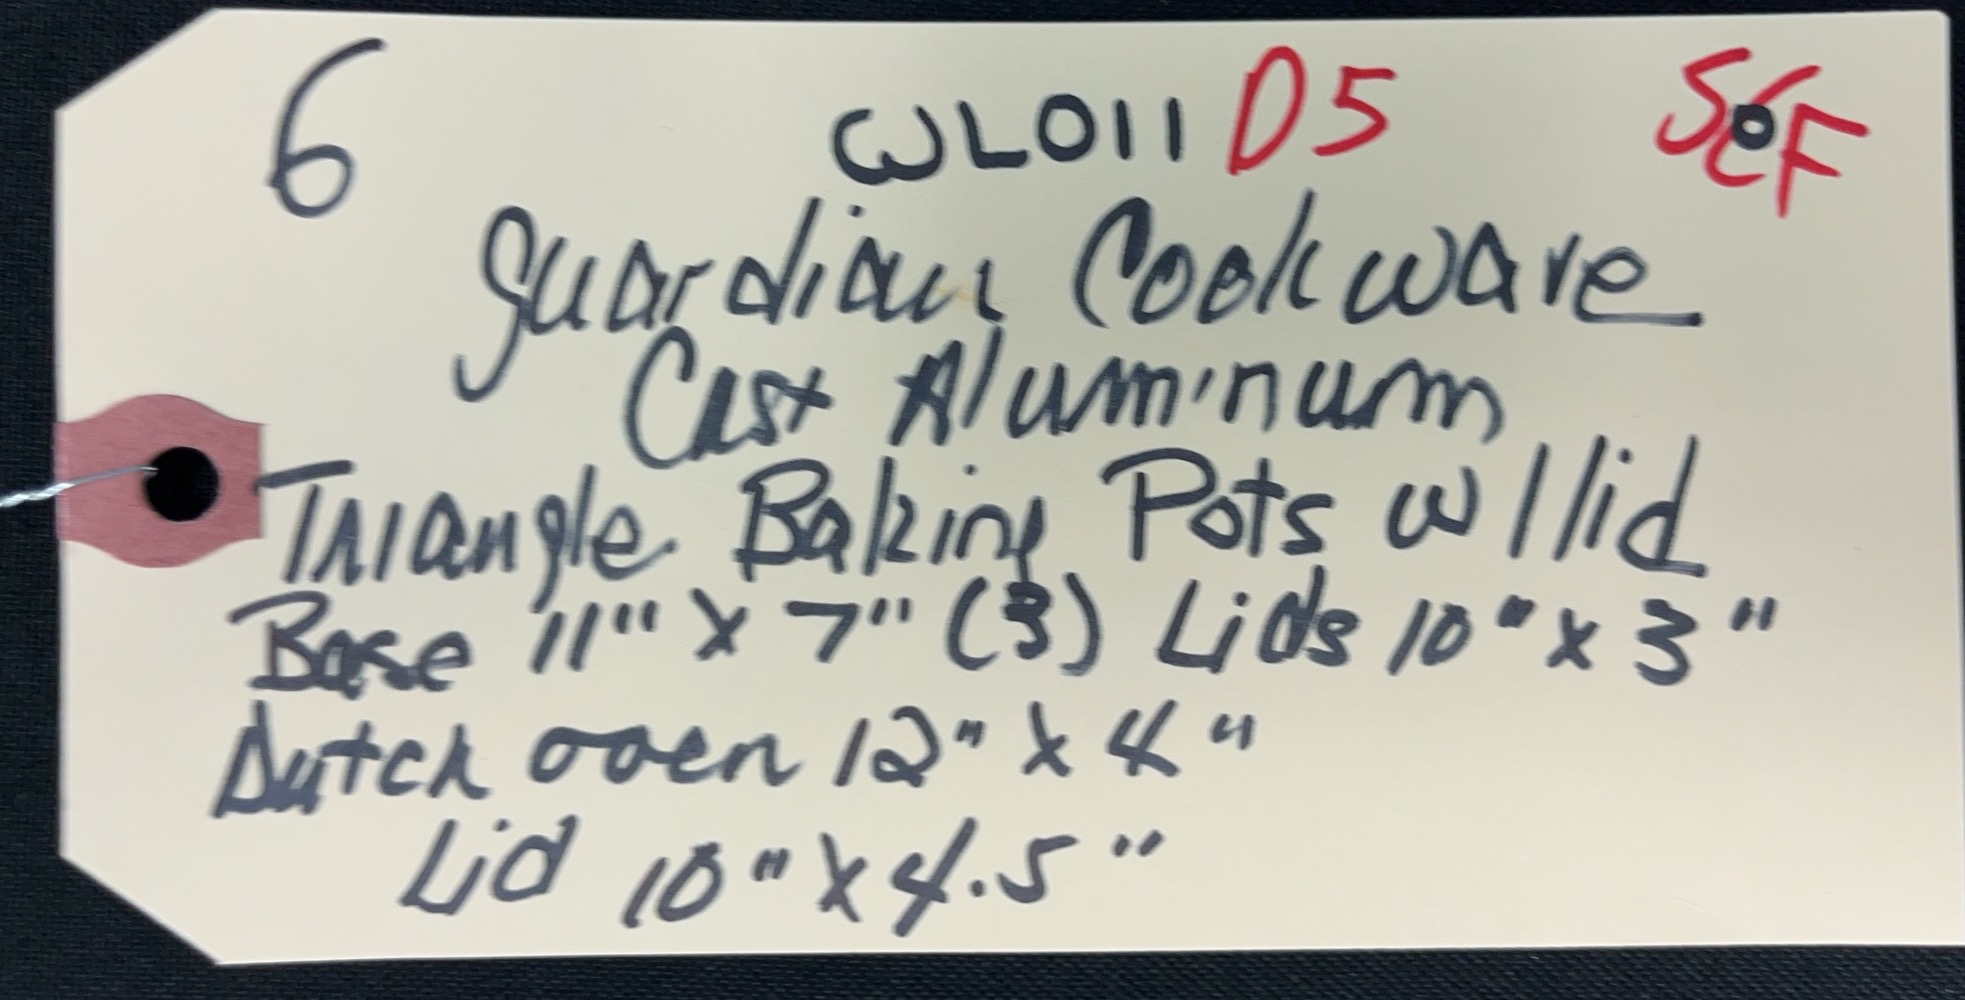 6 WL011 D5 SEF
Guardian Cookware
Cast Aluminum
Triangle Baking Pots w/lid
Base 11" X 7" (3) Lids 10" x 3"
Dutch oven 12" X 4"
Lid 10" X 4.5"